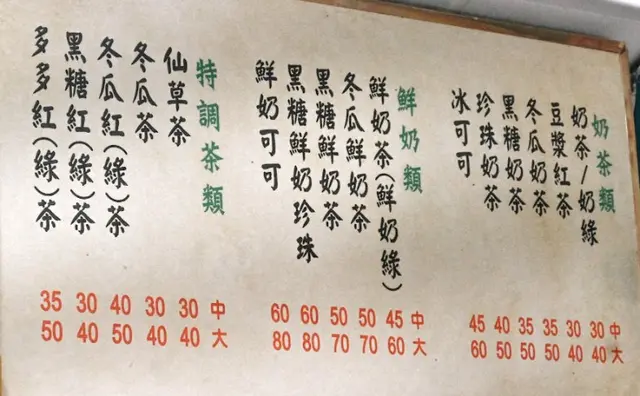 奶茶類
奶茶/奶綠
豆漿紅茶
冬瓜奶茶
黑糖奶茶
珍珠奶茶
冰可可
45 40 35 35 30 30 中
60 50 50 50 40 40 大
鮮奶類
鮮奶茶(鮮奶綠)
冬瓜鮮奶茶
黑糖鮮奶茶
黑糖鮮奶珍珠
鮮奶可可
60 60 50 50 45 中
80 80 70 70 60 大
特調茶類
仙草茶
冬瓜茶
冬瓜紅(綠)茶
黑糖紅(綠)茶
多多紅(綠)茶
35 30 40 30 30 中
50 40 50 40 40 大